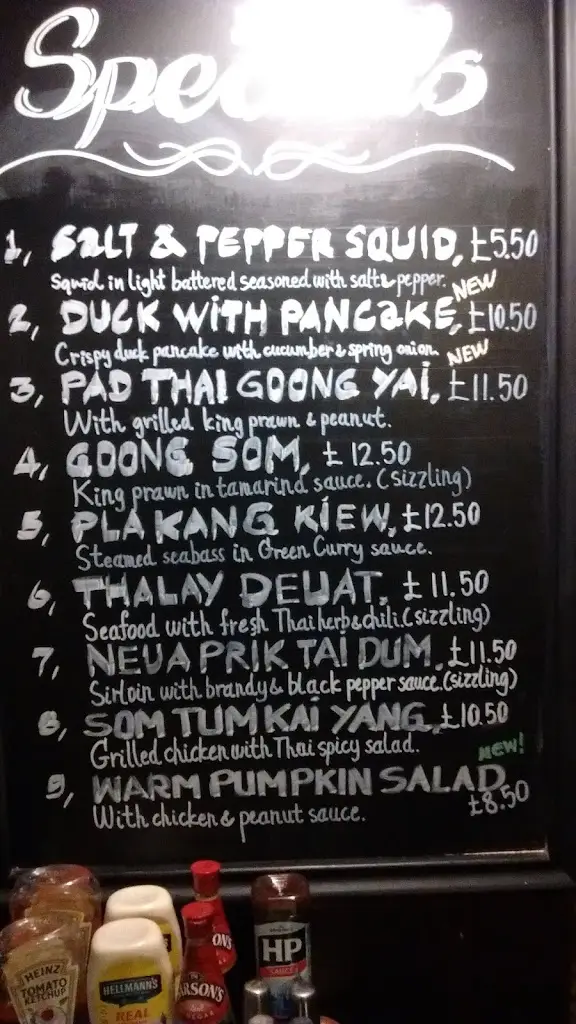 Specials
1, SALT & PEPPER SQUID, £5.50
Squid in light battered seasoned with salt & pepper.
NEW
2, DUCK WITH PANCAKE, £10.50
Crispy duck pancake with cucumber & spring onion.
NEW
3, PAD THAI GOONG YAI, £11.50
With grilled king prawn & peanut.
4, GOONG SOM, £12.50
King prawn in tamarind sauce. (sizzling)
5, PLA KANG KIEW, £12.50
Steamed seabass in Green Curry sauce.
6, THALAY DEUAT, £11.50
Seafood with fresh Thai herb & chili. (sizzling)
7, NEUA PRIK TAI DUM, £11.50
Sirloin with brandy & black pepper sauce. (sizzling)
8, SOM TUM KAI YANG, £10.50
Grilled chicken with Thai spicy salad.
NEW!
9, WARM PUMPKIN SALAD
£8.50
With chicken & peanut sauce.
HEINZ
TOMATO
KETCHUP
HELLMANN'S
REAL
ARSON'S
ONS
HP
SAUCE